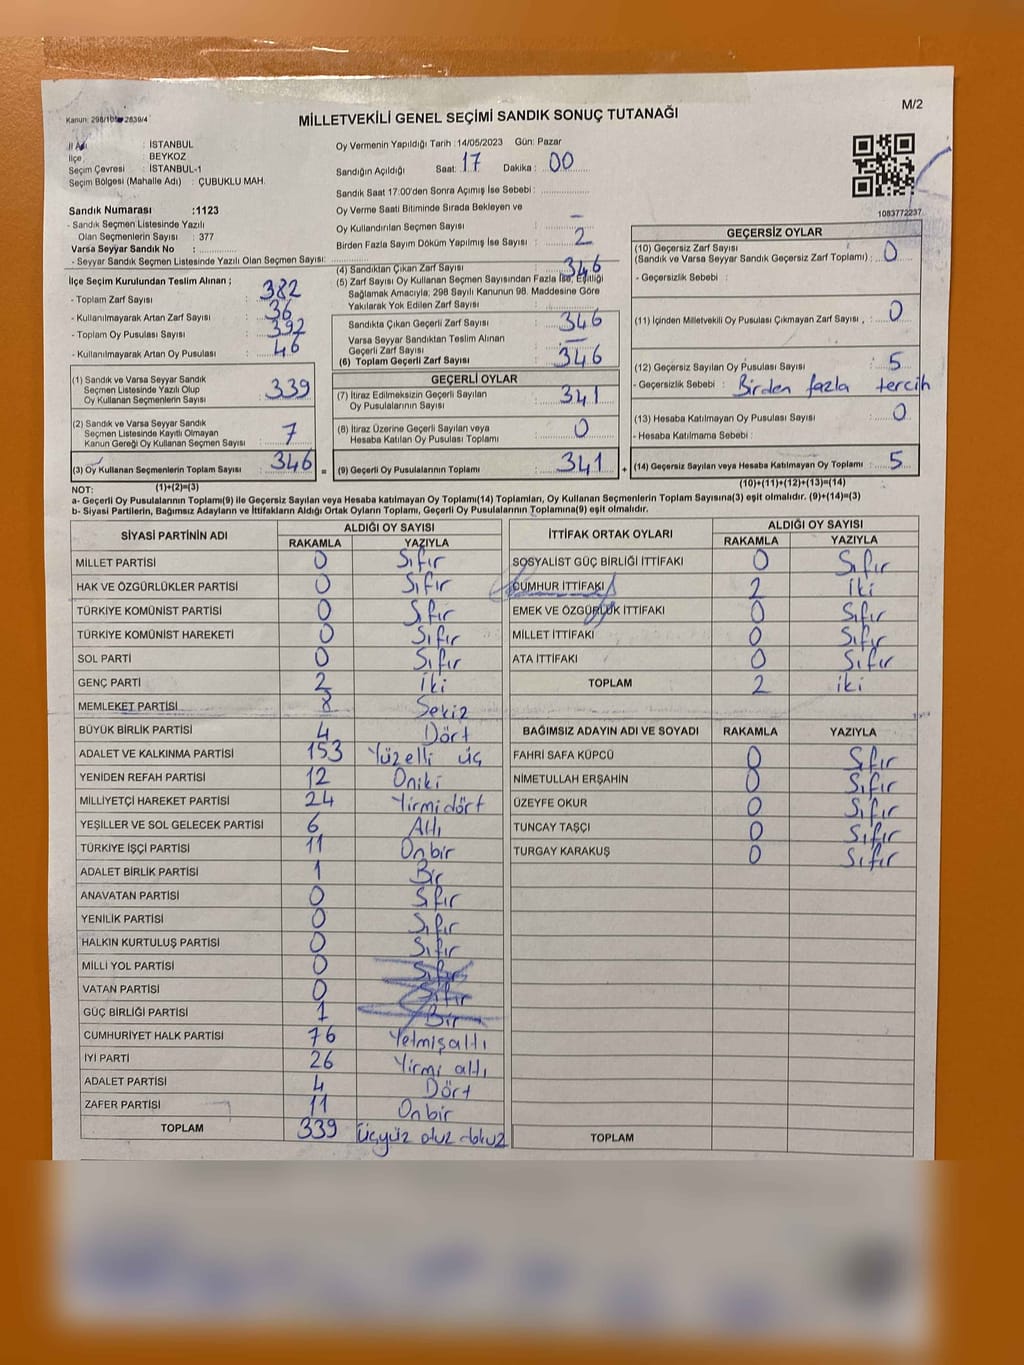 M/2
Kanun: 298/105 2839/4
MİLLETVEKİLİ GENEL SEÇİMİ SANDIK SONUÇ TUTANAĞI
İl Adı : İSTANBUL
İlçe : BEYKOZ
Seçim Çevresi : İSTANBUL-1
Seçim Bölgesi (Mahalle Adı) : ÇUBUKLU MAH.
Sandık Numarası :1123
- Sandık Seçmen Listesinde Yazılı
Olan Seçmenlerin Sayısı : 377
Varsa Seyyar Sandık No :
- Seyyar Sandık Seçmen Listesinde Yazılı Olan Seçmen Sayısı:
Oy Vermenin Yapıldığı Tarih : 14/05/2023 Gün: Pazar
Sandığın Açıldığı Saat: 17 Dakika : 00
Sandık Saat 17:00'den Sonra Açımış İse Sebebi :
Oy Verme Saati Bitiminde Sırada Bekleyen ve
Oy Kullandırılan Seçmen Sayısı : –
Birden Fazla Sayım Döküm Yapılmış İse Sayısı : 2
1083772237
İlçe Seçim Kurulundan Teslim Alınan ;
- Toplam Zarf Sayısı : 382
- Kullanılmayarak Artan Zarf Sayısı : 36
- Toplam Oy Pusulası Sayısı : 392
- Kullanılmayarak Artan Oy Pusulası : 46
(1) Sandık ve Varsa Seyyar Sandık
Seçmen Listesinde Yazılı Olup
Oy Kullanan Seçmenlerin Sayısı : 339
(2) Sandık ve Varsa Seyyar Sandık
Seçmen Listesinde Kayıtlı Olmayan
Kanun Gereği Oy Kullanan Seçmen Sayısı : 7
(3) Oy Kullanan Seçmenlerin Toplam Sayısı : 346 =
(1)+(2)=(3)
(4) Sandıktan Çıkan Zarf Sayısı : 346
(5) Zarf Sayısı Oy Kullanan Seçmen Sayısından Fazla İse, Eşitliği
Sağlamak Amacıyla; 298 Sayılı Kanunun 98. Maddesine Göre
Yakılarak Yok Edilen Zarf Sayısı :
Sandıkta Çıkan Geçerli Zarf Sayısı : 346
Varsa Seyyar Sandıktan Teslim Alınan
Geçerli Zarf Sayısı : –
(6) Toplam Geçerli Zarf Sayısı : 346
GEÇERLİ OYLAR
(7) İtiraz Edilmeksizin Geçerli Sayılan
Oy Pusulalarının Sayısı : 341
(8) İtiraz Üzerine Geçerli Sayılan veya
Hesaba Katılan Oy Pusulası Toplamı : 0
(9) Geçerli Oy Pusulalarının Toplamı : 341 +
GEÇERSİZ OYLAR
(10) Geçersiz Zarf Sayısı
(Sandık ve Varsa Seyyar Sandık Geçersiz Zarf Toplamı) : 0
- Geçersizlik Sebebi :
(11) İçinden Milletvekili Oy Pusulası Çıkmayan Zarf Sayısı : 0
(12) Geçersiz Sayılan Oy Pusulası Sayısı : 5
- Geçersizlik Sebebi : Birden fazla tercih
(13) Hesaba Katılmayan Oy Pusulası Sayısı : 0
- Hesaba Katılmama Sebebi :
(14) Geçersiz Sayılan veya Hesaba Katılmayan Oy Toplamı : 5
(10)+(11)+(12)+(13)=(14)
NOT:
a- Geçerli Oy Pusulalarının Toplamı(9) ile Geçersiz Sayılan veya Hesaba katılmayan Oy Toplamı(14) Toplamları, Oy Kullanan Seçmenlerin Toplam Sayısına(3) eşit olmalıdır. (9)+(14)=(3)
b- Siyasi Partilerin, Bağımsız Adayların ve İttifakların Aldığı Ortak Oyların Toplamı, Geçerli Oy Pusulalarının Toplamına(9) eşit olmalıdır.
SİYASİ PARTİNİN ADI ALDIĞI OY SAYISI
RAKAMLA YAZIYLA
MİLLET PARTİSİ 0 Sıfır
HAK VE ÖZGÜRLÜKLER PARTİSİ 0 Sıfır
TÜRKİYE KOMÜNİST PARTİSİ 0 Sıfır
TÜRKİYE KOMÜNİST HAREKETİ 0 Sıfır
SOL PARTİ 0 Sıfır
GENÇ PARTİ 2 İki
MEMLEKET PARTİSİ 8 Sekiz
BÜYÜK BİRLİK PARTİSİ 4 Dört
ADALET VE KALKINMA PARTİSİ 153 Yüzelli üç
YENİDEN REFAH PARTİSİ 12 Oniki
MİLLİYETÇİ HAREKET PARTİSİ 24 Yirmidört
YEŞİLLER VE SOL GELECEK PARTİSİ 6 Altı
TÜRKİYE İŞÇİ PARTİSİ 11 Onbir
ADALET BİRLİK PARTİSİ 1 Bir
ANAVATAN PARTİSİ 0 Sıfır
YENİLİK PARTİSİ 0 Sıfır
HALKIN KURTULUŞ PARTİSİ 0 Sıfır
MİLLİ YOL PARTİSİ 0 Sıfır
VATAN PARTİSİ 0 Sıfır
GÜÇ BİRLİĞİ PARTİSİ 1 Bir
CUMHURİYET HALK PARTİSİ 76 Yetmişaltı
İYİ PARTİ 26 Yirmi altı
ADALET PARTİSİ 4 Dört
ZAFER PARTİSİ 11 Onbir
TOPLAM 339 Üçyüz otuz dokuz
İTTİFAK ORTAK OYLARI ALDIĞI OY SAYISI
RAKAMLA YAZIYLA
SOSYALİST GÜÇ BİRLİĞİ İTTİFAKI 0 Sıfır
CUMHUR İTTİFAKI 2 İki
EMEK VE ÖZGÜRLÜK İTTİFAKI 0 Sıfır
MİLLET İTTİFAKI 0 Sıfır
ATA İTTİFAKI 0 Sıfır
TOPLAM 2 iki
BAĞIMSIZ ADAYIN ADI VE SOYADI RAKAMLA YAZIYLA
FAHRİ SAFA KÜPCÜ 0 Sıfır
NİMETULLAH ERŞAHİN 0 Sıfır
ÜZEYFE OKUR 0 Sıfır
TUNCAY TAŞÇI 0 Sıfır
TURGAY KARAKUŞ 0 Sıfır
TOPLAM